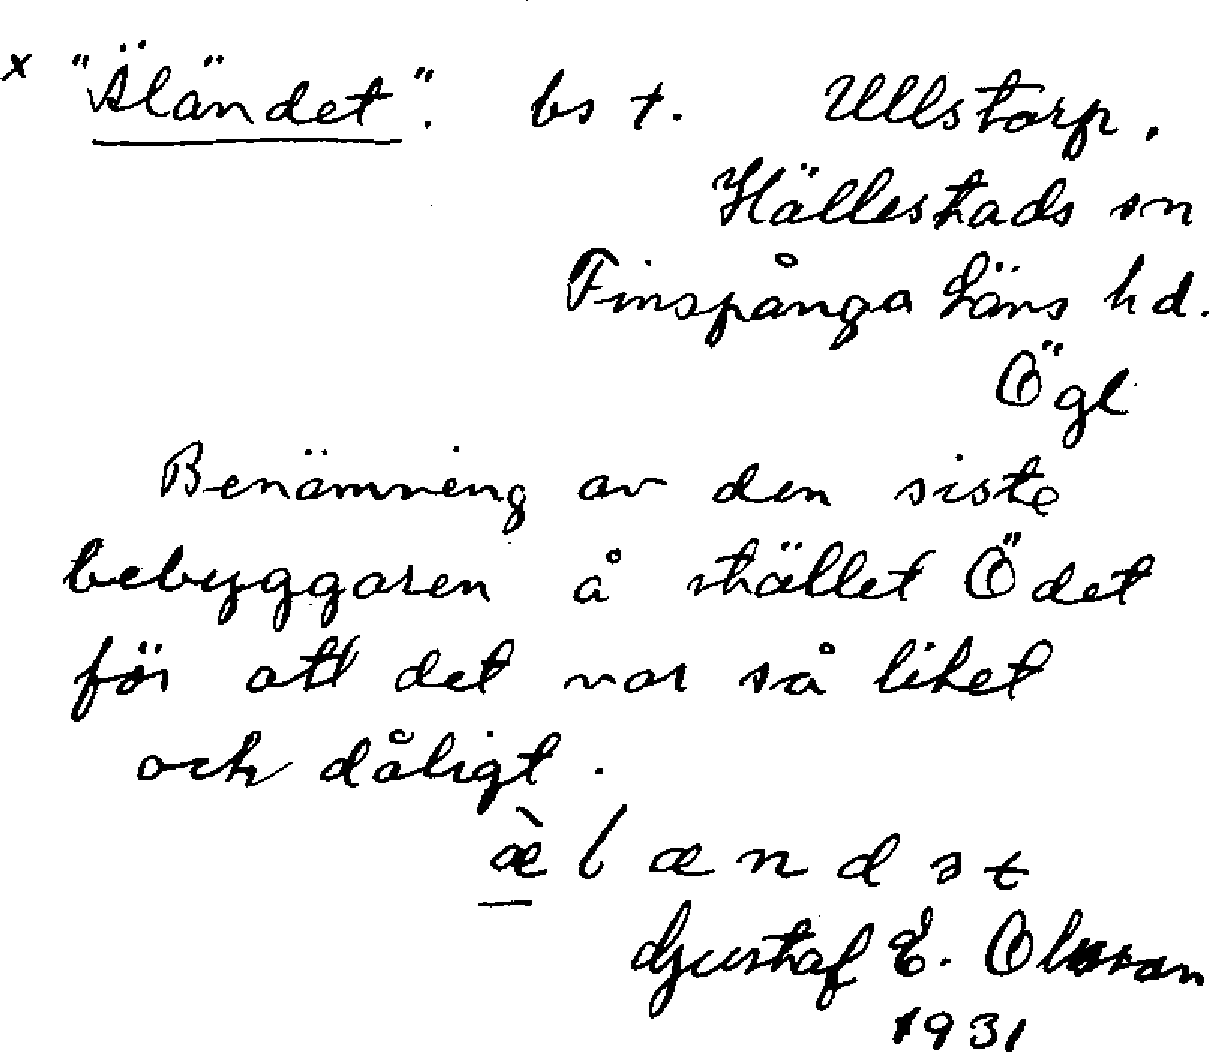 x "Äländet". bs t. Ullstorp.
Hällestads sn
Finspånga Läns hd.
Ögl
Benämning av den siste
bebyggaren å stället Ödet
för att det var så litet
och dåligt.
æ̀ l æ n d ə t
Gustaf E. Olsson
1931